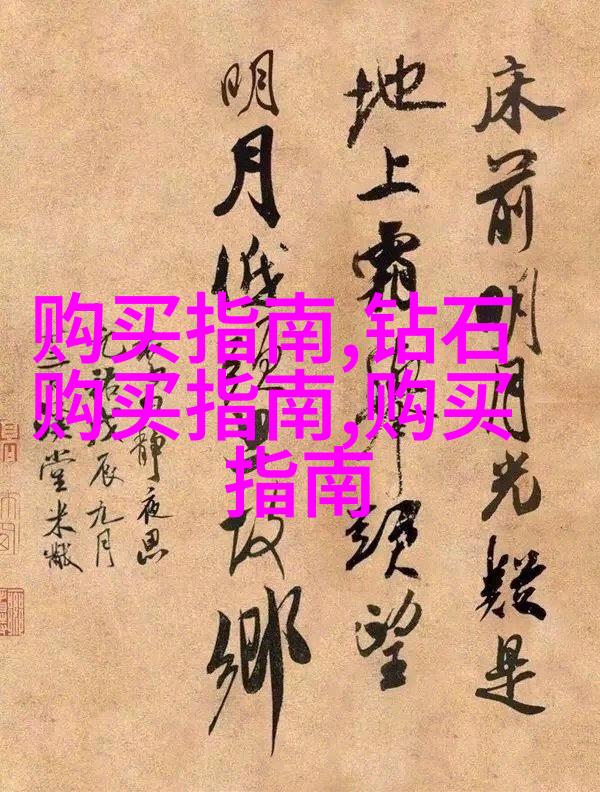 购买指南,钻石
购买指南,购买
指南
床前明月光疑是
地上霜舉頭望
明月低頭故鄉
靜夜思
元祐戊辰九月
堂米黻